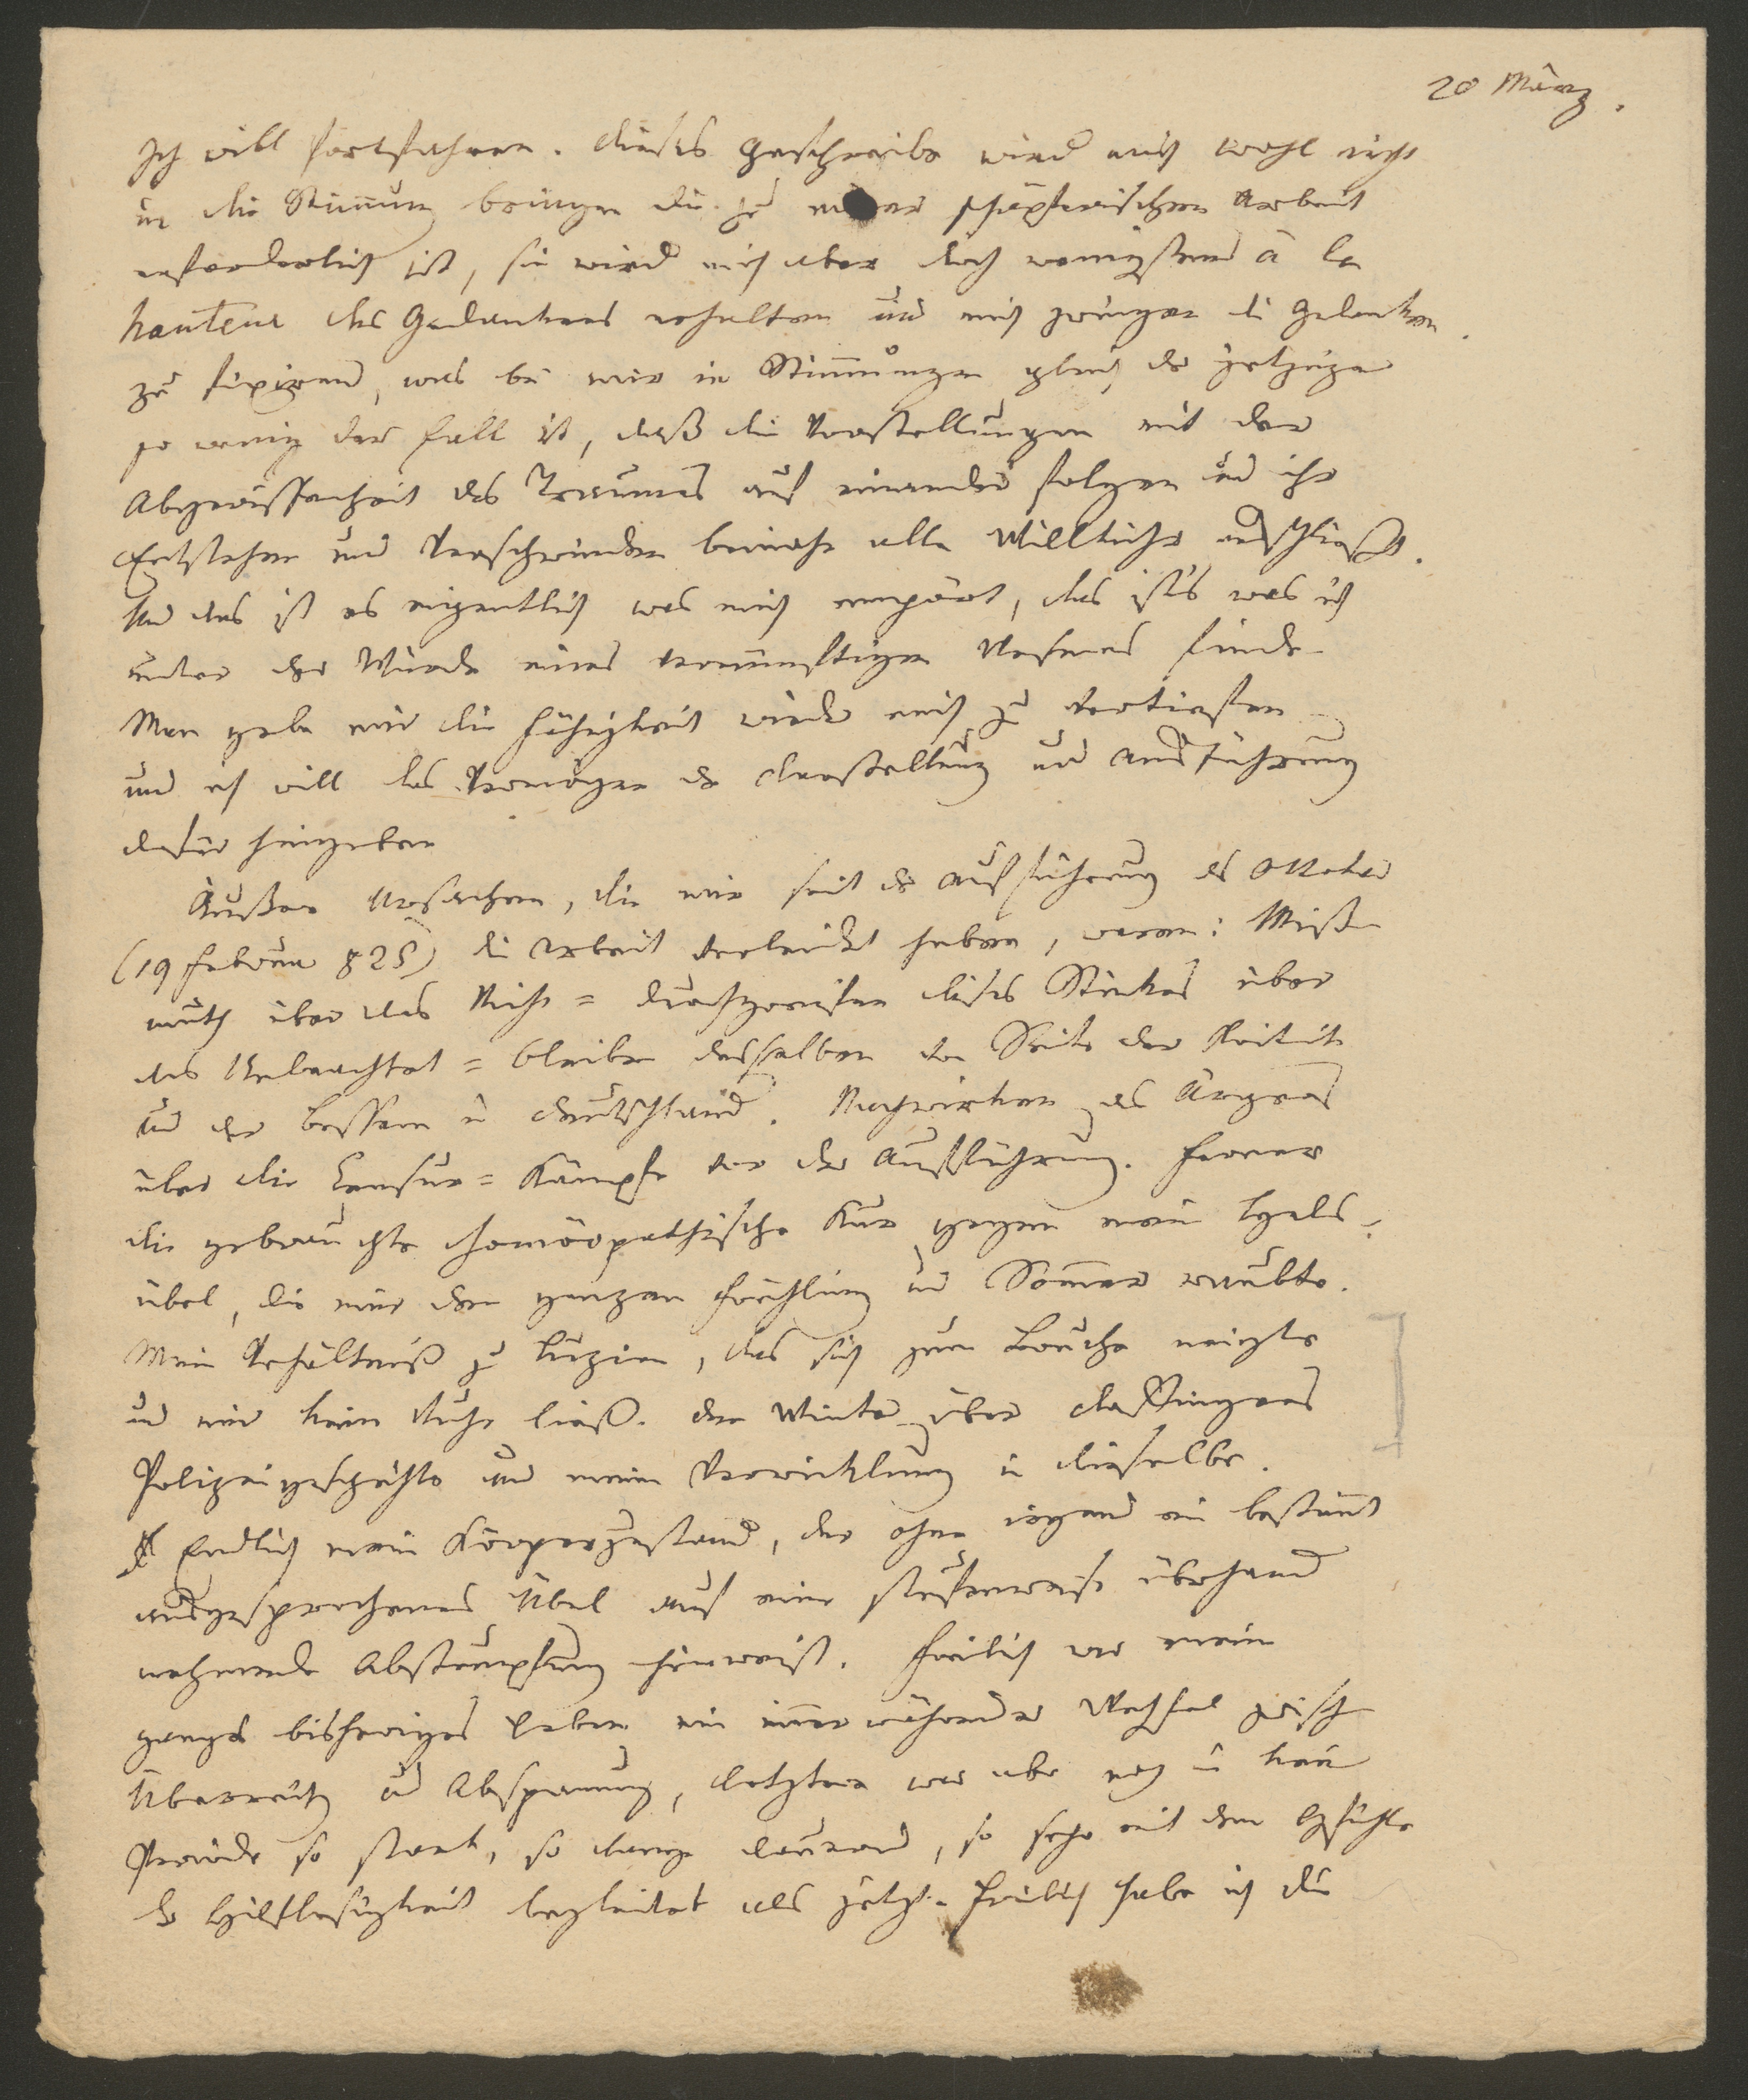 20 März.
Ich will fortfahren. Dieses Geschreibe wird mich wohl nicht
in die Stimmung bringen die zu einer schöpferischen Arbeit
erforderlich ist, sie wird mich aber doch wenigstens à la
hauteur des Gedankens erhalten und mich zwingen die Gedanken
zu fixiren, was bei mir in Stimmungen gleich der jetzigen
so wenig der Fall ist, daß die Vorstellungen mit der
Abgerissenheit des Traumes auf einander folgen und ihr
Entstehen und Verschwinden beinahe alle Willkühr ausschließt.
Und das ist es eigentlich was mich empört, das ist's was ich
unter der Würde eines vernünftigen Wesens finde.
Man gebe mir die Fähigkeit wieder mich zu vertiefen
und ich will das Vermögen der Darstellung und Ausführung
dafür hingeben
Äußere Ursachen, die mir seit der Aufführung des Ottokar
(19 Februar 825) die Arbeit verleidet haben, waren: Miß-
muth über das Nicht = durchgreifen dieses Stückes über
das Unbeachtet = bleiben desselben von Seite der Kritik
und der Bessern in Deutschland. Nachwirken des Ärgers
über die Censur = Kämpfe vor der Aufführung. Ferner
die gebrauchte homöopathische Kur gegen mein Hals-
übel, die mir den ganzen Frühling und Sommer raubte.
Mein Verhältniß zu , das sich zum Bruche neigte
und mir keine Ruhe ließ. Den Winter über
Polizeigeschichte und meine Verwicklung in dieselbe.
Endlich mein Körperzustand, der ohne irgend ein bestimmt
ausgesprochenes Übel auf eine stufenweise überhand
nehmende Abstumpfung hinweist. Freilich war mein
ganzes bisheriges Leben ein immerwährender Wechsel zwischen
Überreitz und Abspannung, letztere war aber noch in keiner
Periode so stark, so lange dauernd, so sehr mit dem Gefühle
der Hilflosigkeit begleitet als jetzt. Freilich habe ich die